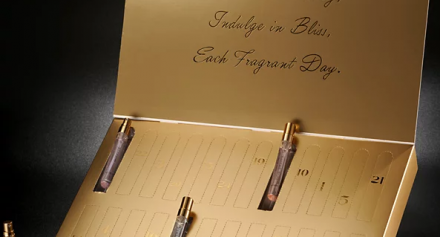 Indulge in Bliss,
Each Fragrant Day.
10
10
1
5
21